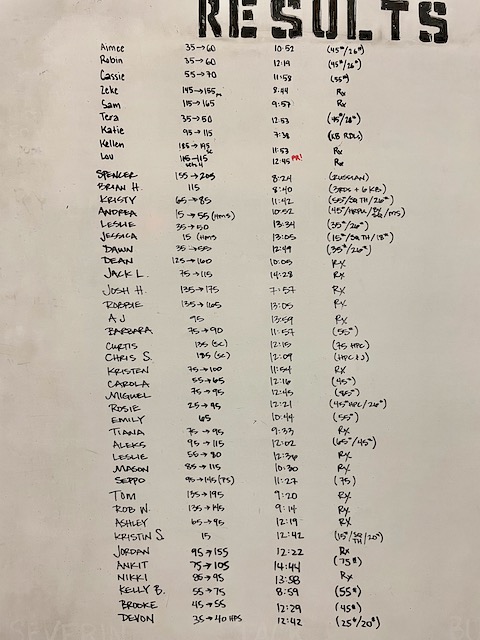 RESULTS
Aimee 35→60 10:52 (45#/26")
Robin 35→60 12:19 (45#/26")
Cassie 55→70 11:58 (55#)
Zeke 145→155 8:44 Rx
Sam 115→165 9:57 Rx
Tera 35→50 12:53 (45#/26")
Katie 95→115 7:38 (KB RDLs)
Kellen 185→195 11:53 Rx
Lou 115-115 12:45 PR! Rx
SPENCER 155→205 8:24 (RUSSIAN)
BRIAN H. 115 8:40 (3RDS + 6 KB)
KRISTY 65→85 11:42 (55#/SQ TH/26")
ANDREA 15→55 (HMS) 10:52
LESLIE 35→50 13:34 (35#/26")
JESSICA 15 (HMS 13:05 (15#/SQ TH/18")
DAWN 35→55 12:49 (35#/26")
DEAN 125→160 10:05 RX
JACK L. 75→115 14:28 RX
JOSH H. 135→175 7:57 RX
ROBBIE 135→165 13:05 RX
AJ 95 13:59 RX
BARBARA 75→90 11:57 (55#)
CURTIS 135 (SC) 12:15 (75 HPC)
CHRIS S. 185 (SC) 12:09 (HPC+J)
KRISTEN 75→100 11:54 RX
CAROLA 55→65 12:16 (45#)
MIGUEL 75→95 12:45 (85#)
ROSIE 25→45 12:21 (45#HPC/26")
EMILY 65 10:44 (55#)
TIANA 75→95 9:33 RX
ALEKS 95→115 12:02 (65#/45#)
LESLIE 55→80 12:36 RX
MASON 85→115 10:30 RX
SEPPO 95→145(TS) 11:27 (75)
TOM 155→195 9:20 RX
ROB W. 135→145 9:14 RX
ASHLEY 65→95 12:19 RX
KRISTIN S. 15 12:42 (15#/SQ TH/20")
JORDAN 95→155 12:22 Rx
ANKIT 75→105 14:44 (75#)
NIKKI 85→95 13:58 Rx
KELLY B. 55→75 8:59 (55#)
BROOKE 45→55 12:29 (45#)
DEVON 35→40 HPS 12:42 (25#/20")